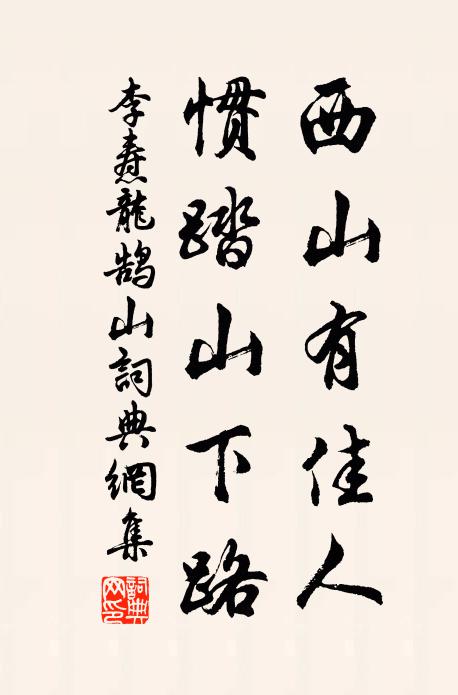 西山有佳人
慣踏山下路
李燾龍鵠山詞典網集
詞典网印